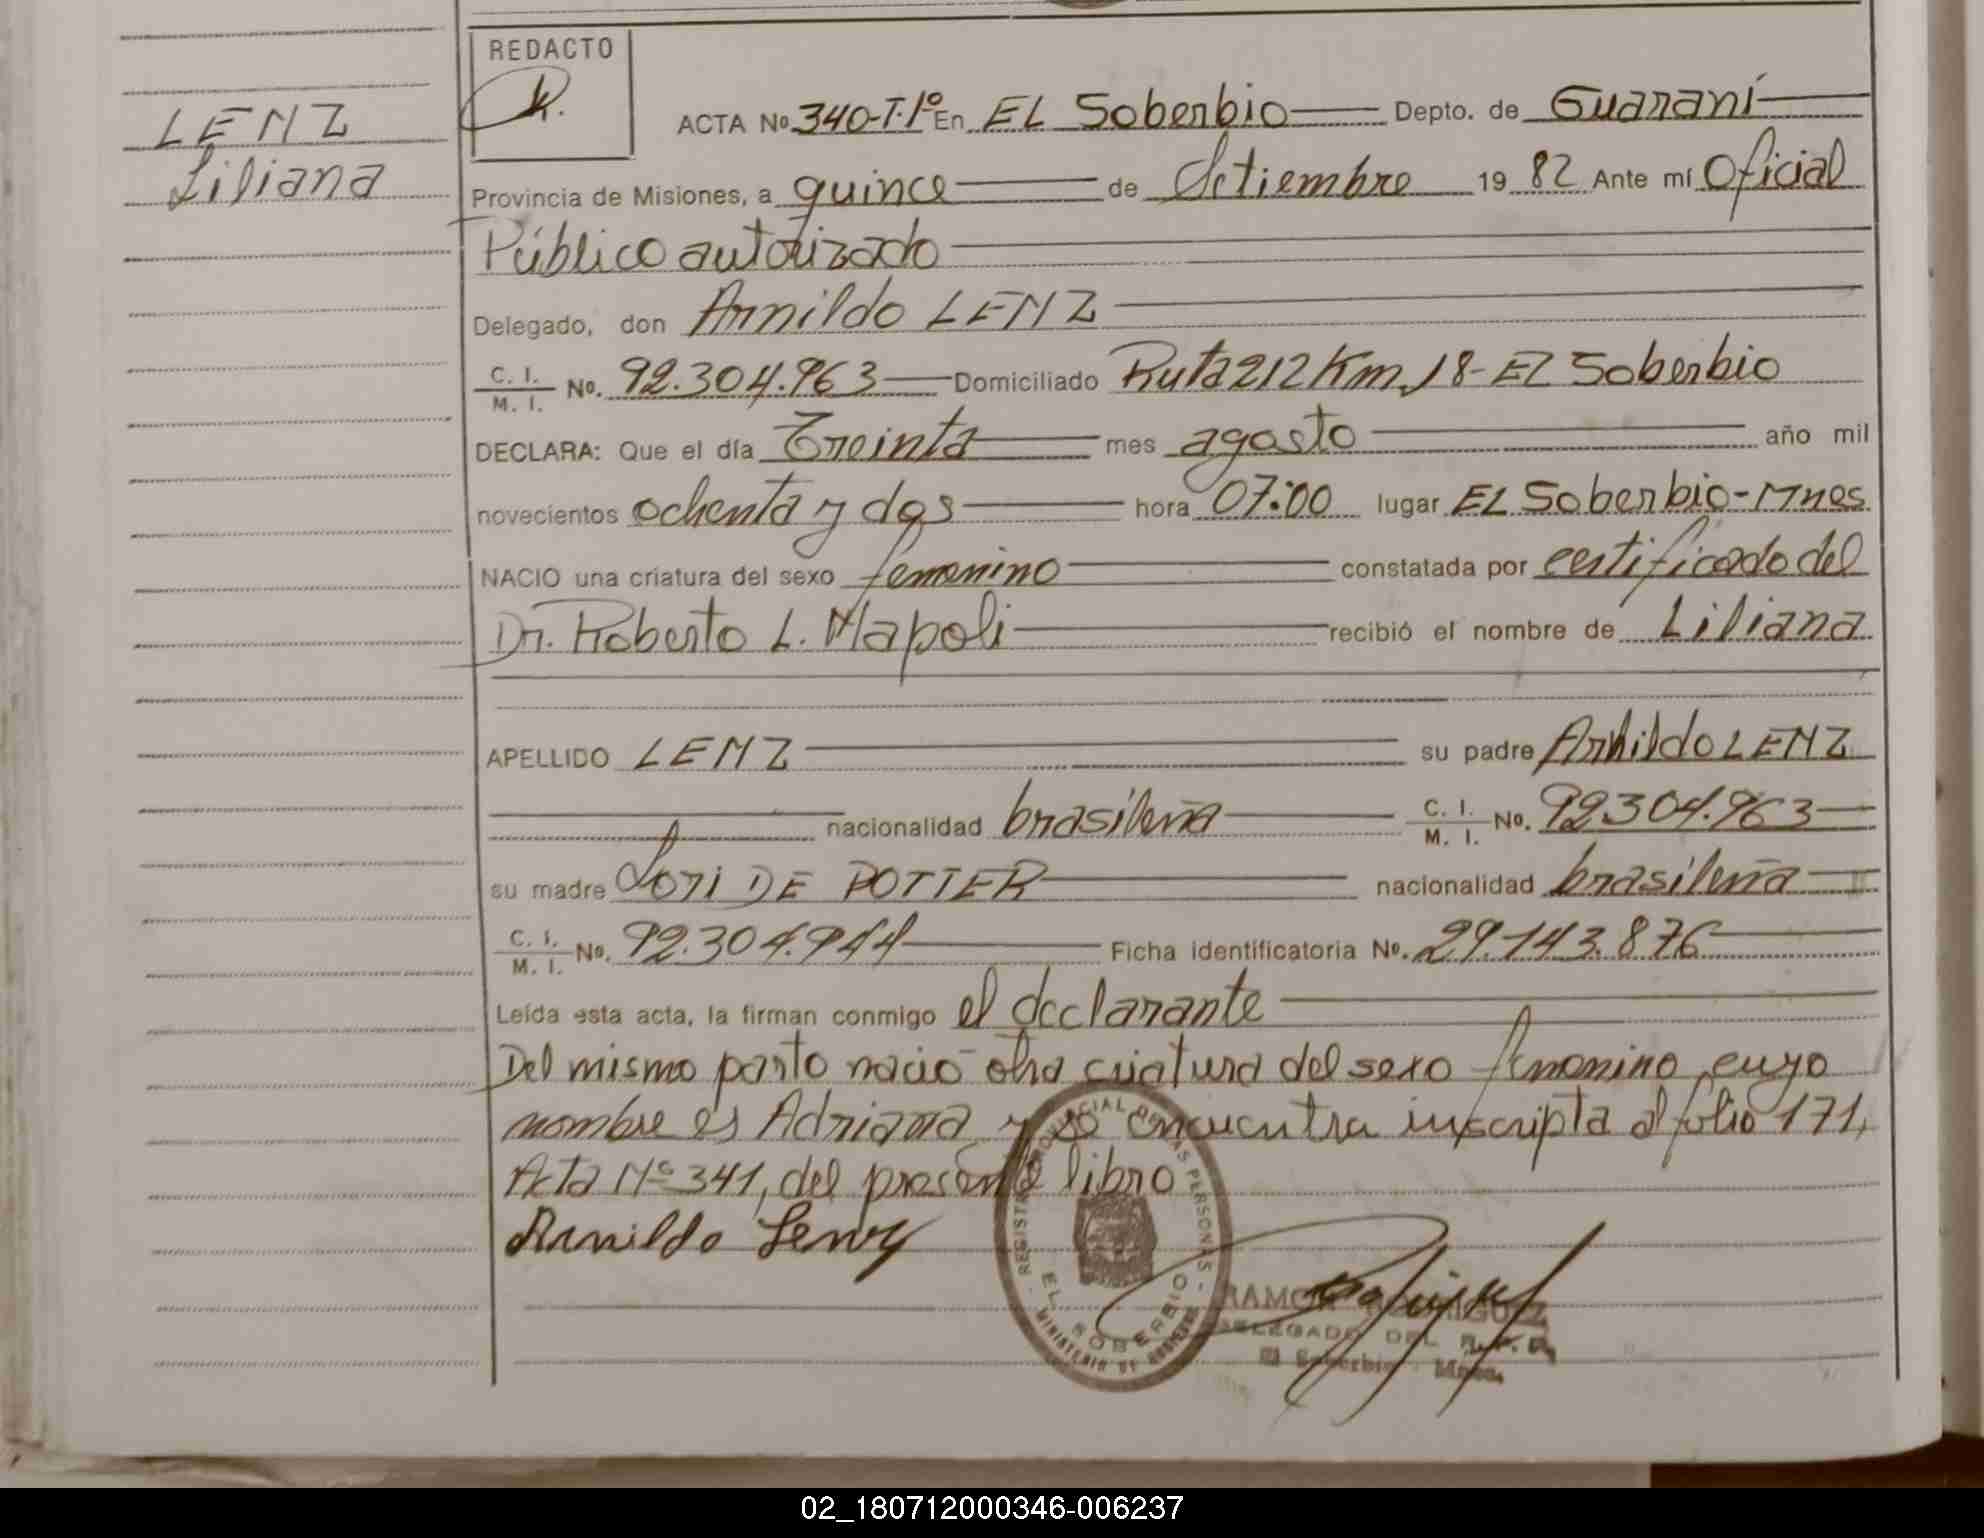 LENZ
Liliana
REDACTO
ACTA No. 340-T.1º En EL Soberbio Depto. de Guaraní
Provincia de Misiones, a quince de Setiembre 19 82 Ante mí Oficial
Público autorizado
Delegado, don Arnildo LENZ
C. I. M. I. No. 92.304.963 Domiciliado Ruta 212 Km 18 - EL Soberbio
DECLARA: Que el día Treinta mes agosto año mil
novecientos ochenta y dos hora 07:00 lugar EL Soberbio - Mnes
NACIO una criatura del sexo femenino constatada por certificado del
Dr. Roberto L. Napoli recibió el nombre de Liliana
APELLIDO LENZ su padre Arnildo LENZ
nacionalidad brasileña C. I. M. I. No. 92.304.963
su madre Lori DE POTTER nacionalidad brasileña
C. I. M. I. No. 92.304.944 Ficha identificatoria No. 29.143.876
Leída esta acta, la firman conmigo el declarante
Del mismo parto nació otra criatura del sexo femenino, cuyo
nombre es Adriana y se encuentra inscripta al folio 171,
Acta Nº 341, del presente libro
Arnildo Lenz
REGISTRO PROVINCIAL DE LAS PERSONAS
EL SOBERBIO
MINISTERIO DE GOBIERNO
RAMON RODRIGUEZ
DELEGADO DEL R.P.P.
El Soberbio - Mnes.
02_180712000346-006237